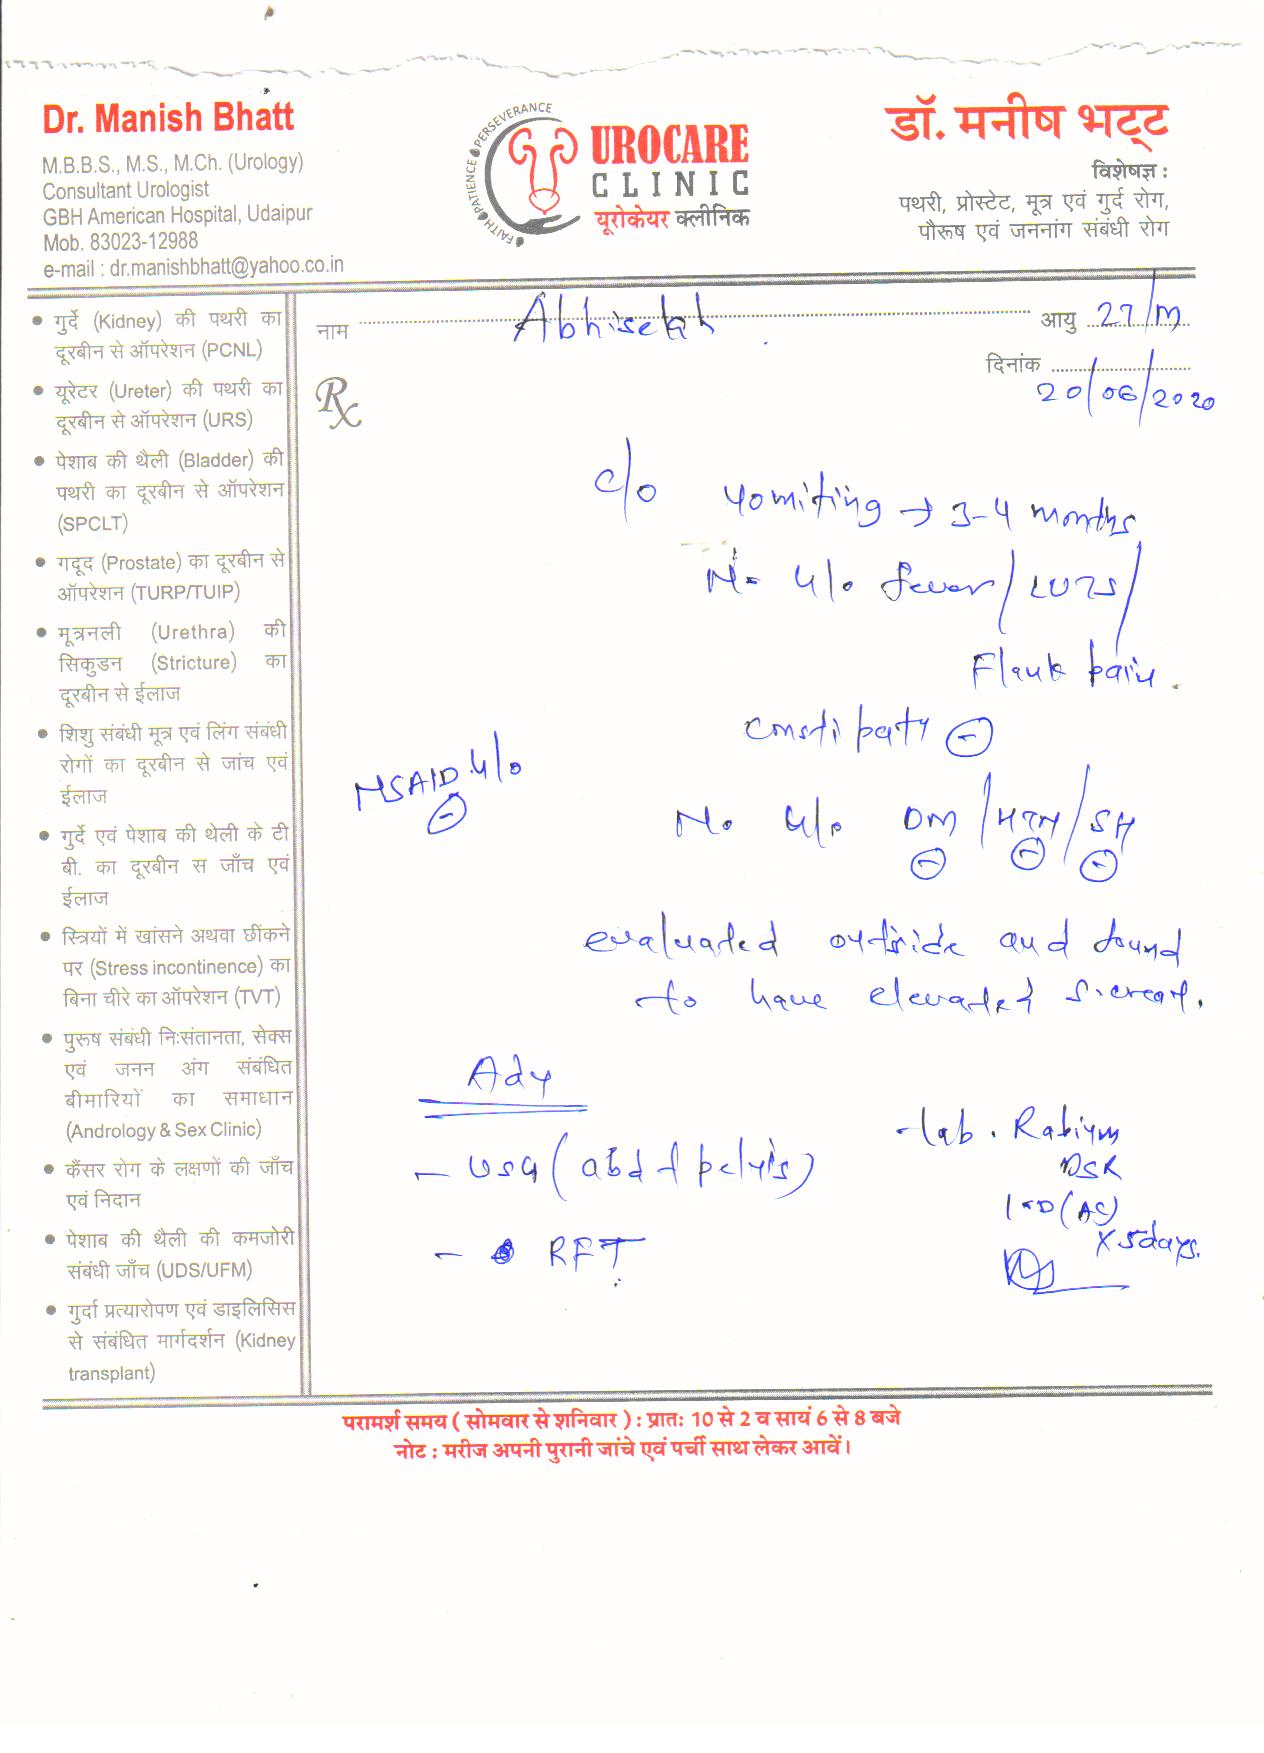 Dr. Manish Bhatt
M.B.B.S., M.S., M.Ch. (Urology)
Consultant Urologist
GBH American Hospital, Udaipur
Mob. 83023-12988
e-mail : dr.manishbhatt@yahoo.co.in
FAITH PATIENCE PERSEVERANCE
UROCARE
CLINIC
यूरोकेयर क्लीनिक
डॉ. मनीष भट्ट
विशेषज्ञ :
पथरी, प्रोस्टेट, मूत्र एवं गुर्द रोग,
पौरूष एवं जननांग संबंधी रोग
गुर्दे (Kidney) की पथरी का
दूरबीन से ऑपरेशन (PCNL)
यूरेटर (Ureter) की पथरी का
दूरबीन से ऑपरेशन (URS)
पेशाब की थैली (Bladder) की
पथरी का दूरबीन से ऑपरेशन
(SPCLT)
गदूद (Prostate) का दूरबीन से
ऑपरेशन (TURP/TUIP)
मूत्रनली (Urethra) की
सिकुडन (Stricture) का
दूरबीन से ईलाज
शिशु संबंधी मूत्र एवं लिंग संबंधी
रोगों का दूरबीन से जांच एवं
ईलाज
गुर्दे एवं पेशाब की थैली के टी
बी. का दूरबीन स जाँच एवं
ईलाज
स्त्रियों में खांसने अथवा छींकने
पर (Stress incontinence) का
बिना चीरे का ऑपरेशन (TVT)
पुरूष संबंधी निःसंतानता, सेक्स
एवं जनन अंग संबंधित
बीमारियों का समाधान
(Andrology & Sex Clinic)
कैंसर रोग के लक्षणों की जाँच
एवं निदान
पेशाब की थैली की कमजोरी
संबंधी जाँच (UDS/UFM)
गुर्दा प्रत्यारोपण एवं डाइलिसिस
से संबंधित मार्गदर्शन (Kidney
transplant)
नाम Abhisekh आयु 27/M
दिनांक 20/06/2020
Rx
c/o vomiting → 3-4 months
No H/o fever/LUTS/
Flank pain
constipatn ⊖
NSAID H/o ⊖
No H/o DM/HTN/SH
⊖ ⊖ ⊖
evaluated outside and found
to have elevated S.creat.
Adv
- USG (abd + pelvis)
- RFT
- tab. Rabium
DSR
1 OD (AC)
x 5days.
परामर्श समय ( सोमवार से शनिवार ) : प्रातः 10 से 2 व सायं 6 से 8 बजे
नोट : मरीज अपनी पुरानी जांचे एवं पर्ची साथ लेकर आवें।